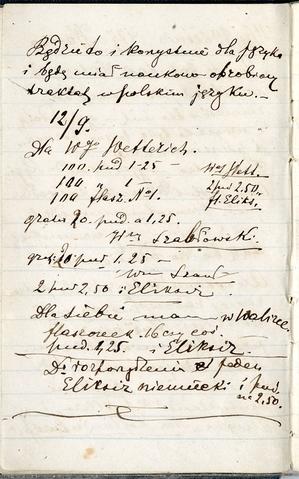 Będzie to i korzystne dla języka
i będę miał naukowo obrobiony
traktat w polskim języku. —
12/9.
Dla Wgo Wetterich.
100. pud 1-25 —
100 " 1 —
100 flasz. No 1.
2 pud 2,50.
fl. Eliks.
gratis 20. pud. a 1,25.
Szabłowski.
20 pud 1.25 —
2 pud 2,50 i Elixir
Dla siebie mam w walizce
flaszeczek 16 czy coś.
pud. 1,25. i Elixir
Do rozporządzenia jeden
Elixir niemiecki i pud.
na 2,50.